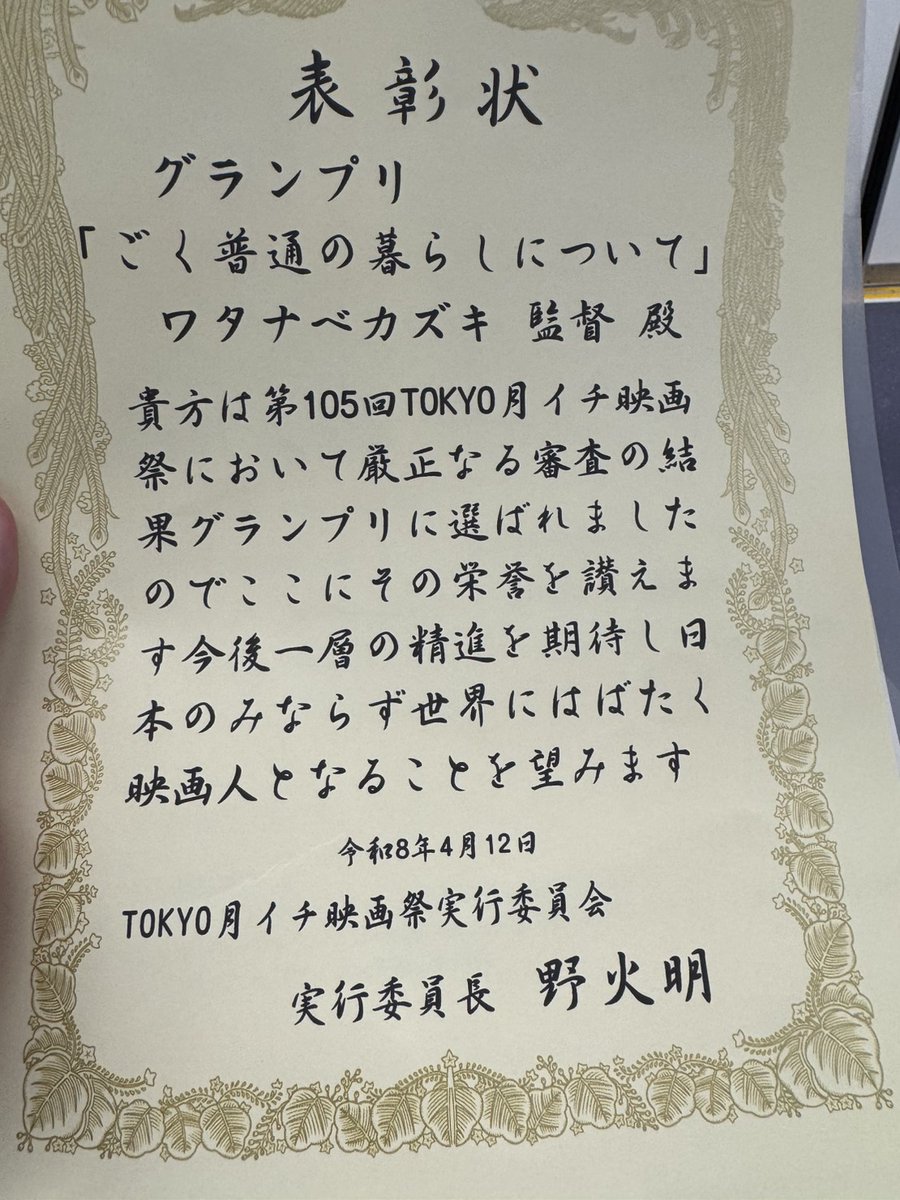 表彰状
グランプリ
「ごく普通の暮らしについて」
ワタナベカズキ 監督 殿
貴方は第105回TOKYO月イチ映画
祭において厳正なる審査の結
果グランプリに選ばれました
のでここにその栄誉を讃えま
す今後一層の精進を期待し日
本のみならず世界にはばたく
映画人となることを望みます
令和8年4月12日
TOKYO月イチ映画祭実行委員会
実行委員長 野火明